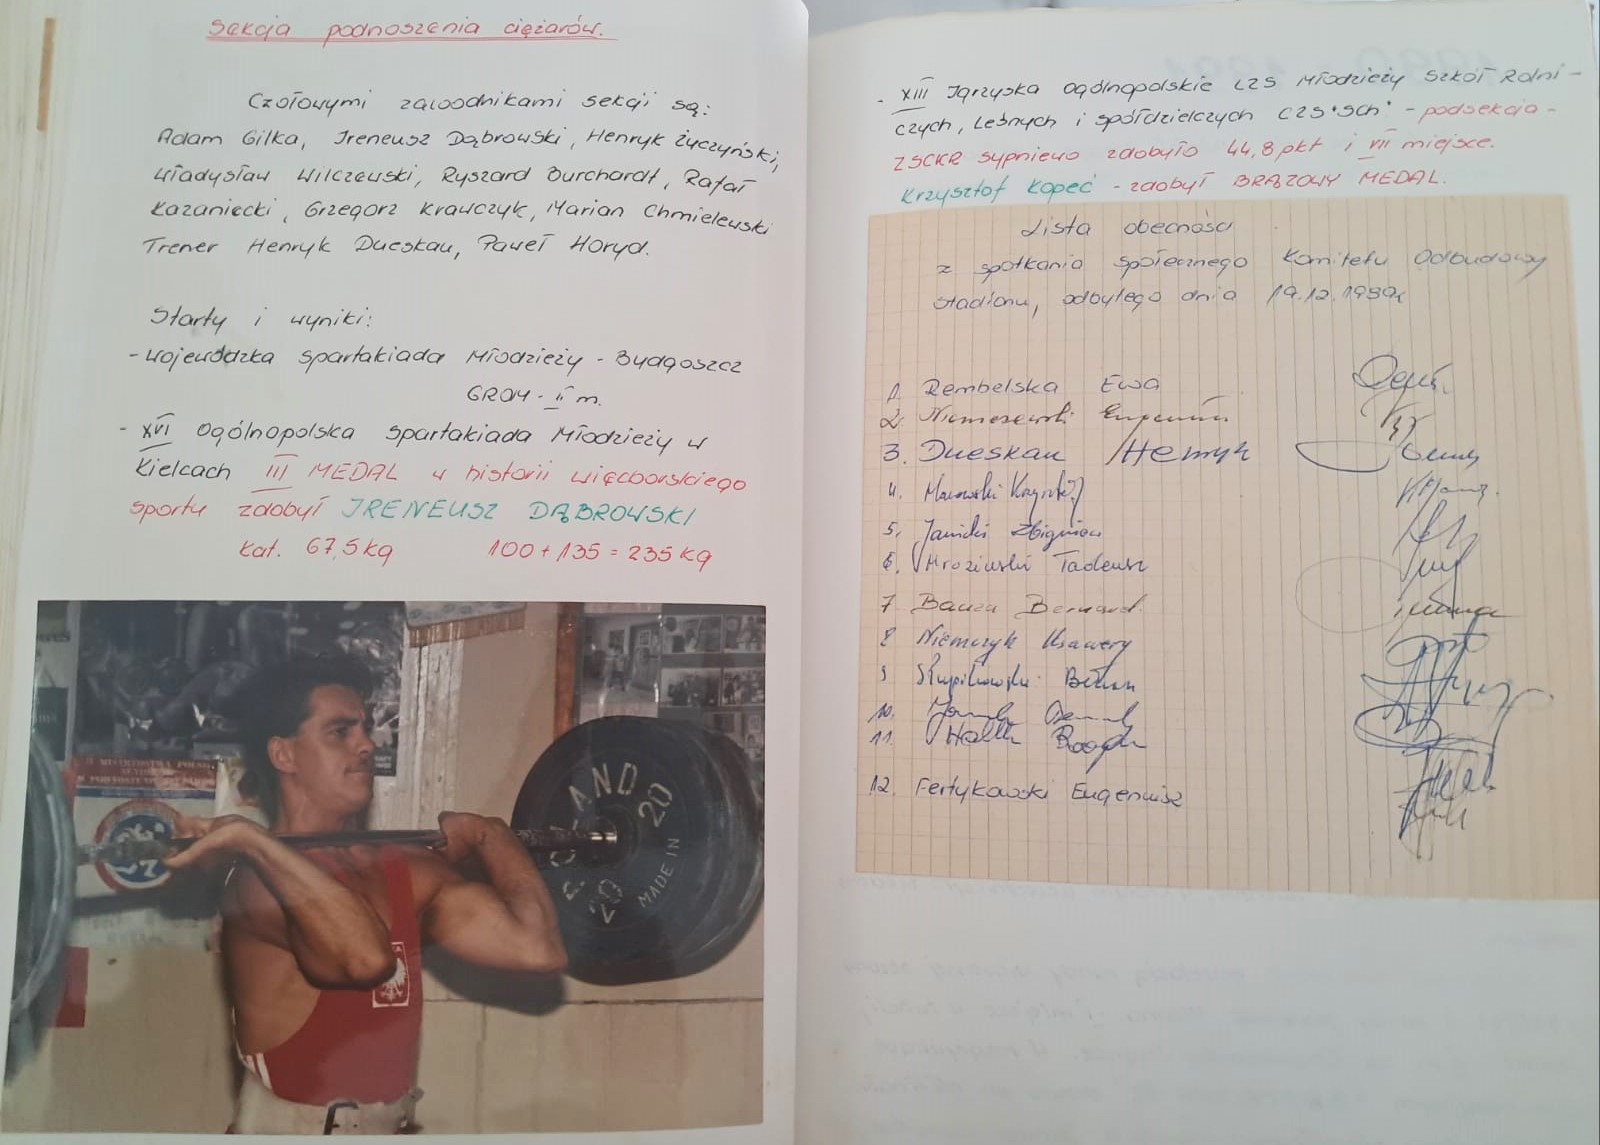 Sekcja podnoszenia ciężarów.
Czołowymi zawodnikami sekcji są:
Adam Gilka, Ireneusz Dąbrowski, Henryk Życzyński,
Władysław Wilczewski, Ryszard Burchardt, Rafał
Kazaniecki, Grzegorz Krawczyk, Marian Chmielewski
Trener Henryk Dueskau, Paweł Horyd.
Starty i wyniki:
- Wojewódzka Spartakiada Młodzieży - Bydgoszcz
GROM - II m.
- XVI Ogólnopolska Spartakiada Młodzieży w
Kielcach III MEDAL w historii więcborskiego
sportu zdobył IRENEUSZ DĄBROWSKI
kat. 67,5 kg 100 + 135 = 235 kg
AND
20
20
MADE IN
- XIII Igrzyska Ogólnopolskie LZS Młodzieży Szkół Rolni-
czych, Leśnych i Spółdzielczych CZS "SCh" - podsekcja -
ZSCKR Sypniewo zdobyło 44,8 pkt i VII miejsce.
Krzysztof Kopeć - zdobył BRĄZOWY MEDAL.
Lista obecności
z spotkania społecznego Komitetu Odbudowy
Stadionu, odbytego dnia 19.12.1989r
1. Rembelska Ewa
2.
3. Dueskau Henryk
4.
5. Janicki Zbigniew
6. Mroziński Tadeusz
7 Bauza Bernard
8 Niemczyk Ksawery
9
10.
11.
12. Fertykowski Eugeniusz